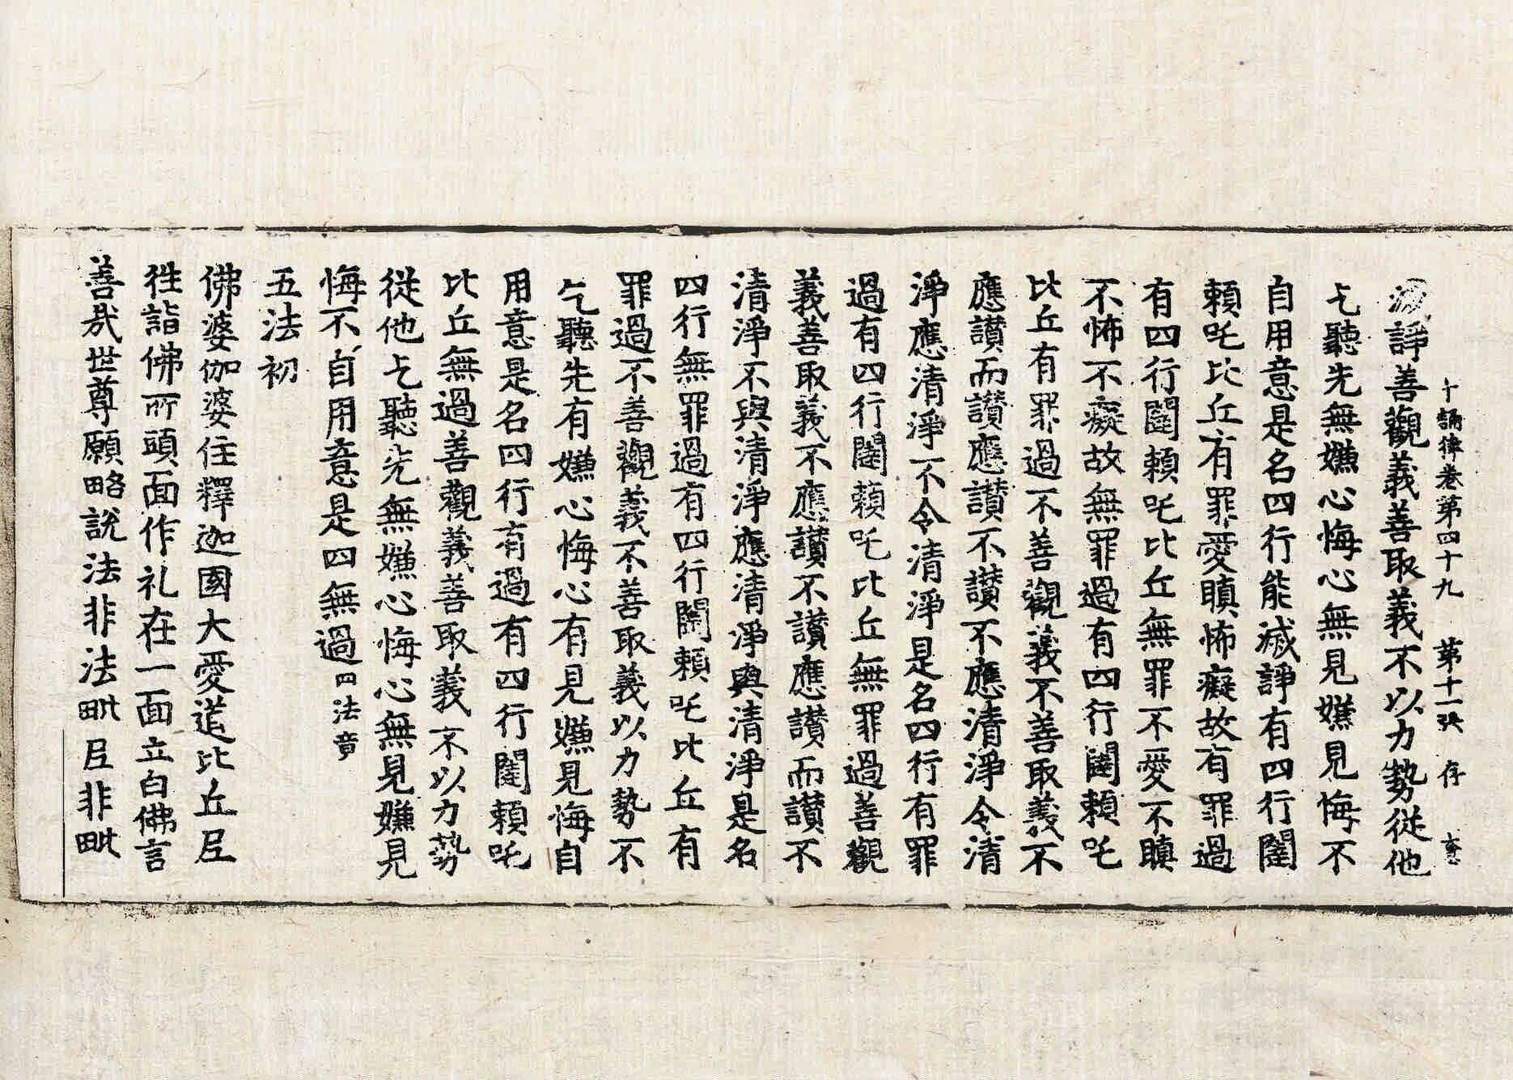 十誦律卷第四十九 第十一張 存
滅諍善觀義善取義不以力勢從他
乞聽先無嫌心悔心無見嫌見悔不
自用意是名四行能滅諍有四行闥
賴吒比丘有罪愛瞋怖癡故有罪過
有四行闥賴吒比丘無罪不愛不瞋
不怖不癡故無罪過有四行闥賴吒
比丘有罪過不善觀義不善取義不
應讃而讃應讃不讃不應清淨令清
淨應清淨不令清淨是名四行有罪
過有四行闥賴吒比丘無罪過善觀
義善取義不應讃不讃應讃而讃不
清淨不與清淨應清淨與清淨是名
四行無罪過有四行闥賴吒比丘有
罪過不善觀義不善取義以力勢不
乞聽先有嫌心悔心有見嫌見悔自
用意是名四行有過有四行闥賴吒
比丘無過善觀義善取義不以力勢
從他乞聽先無嫌心悔心無見嫌見
悔不自用意是四無過四法竟
五法初
佛婆伽婆住釋迦國大愛道比丘尼
徃詣佛所頭面作礼在一面立白佛言
善㢤世尊願略說法非法毗尼非毗